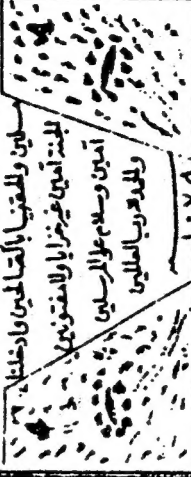 مسلمين والحقنا بالصالحين وادخلنا
الجنة آمنين غير خزايا ولا مفتونين
آمين وسلام على المرسلين
والحمد لله رب العالمين